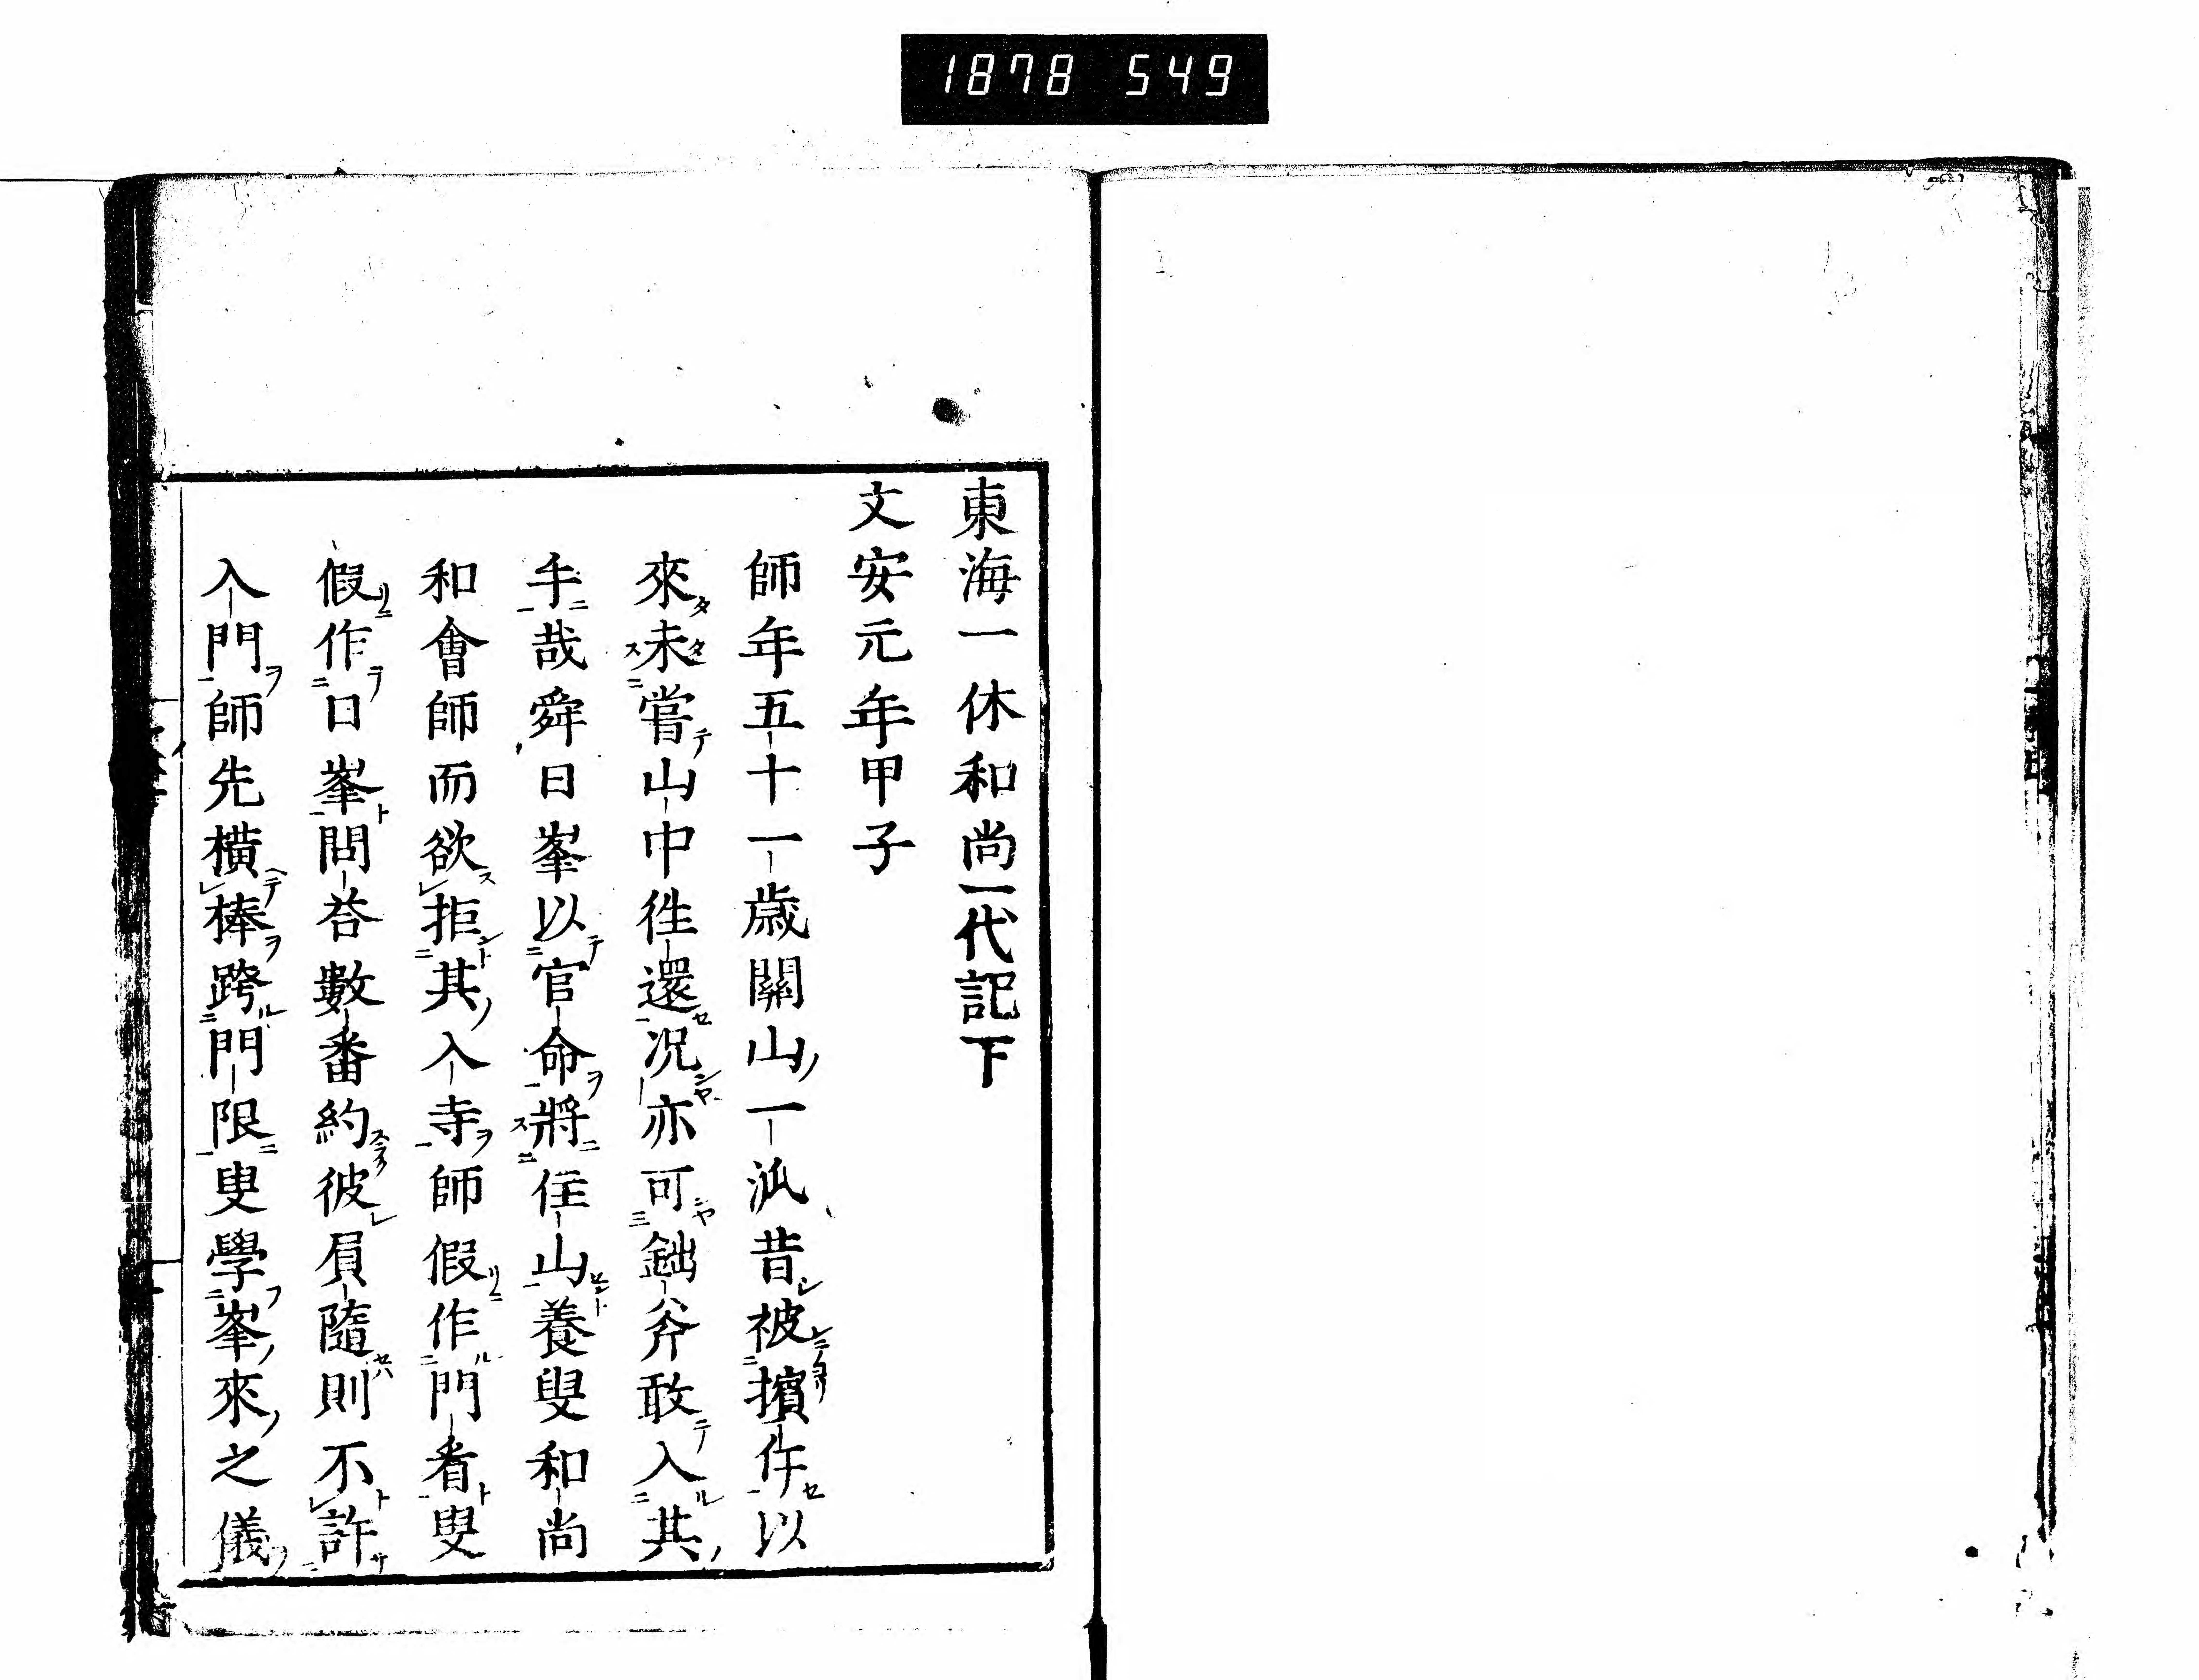 1878 549
東海一休和尚一代記下
文安元年甲子
師年五十一歳關山一派昔被擯斥以
來未嘗山中徃還況亦可鈯斧敢入其
手哉舜日峯以官命將住山養叟和尚
和會師而欲拒其入寺師假作門看叟
假作日峯問荅數番約彼屓隨則不許
入門師先橫棒跨門限叟學峯來之儀